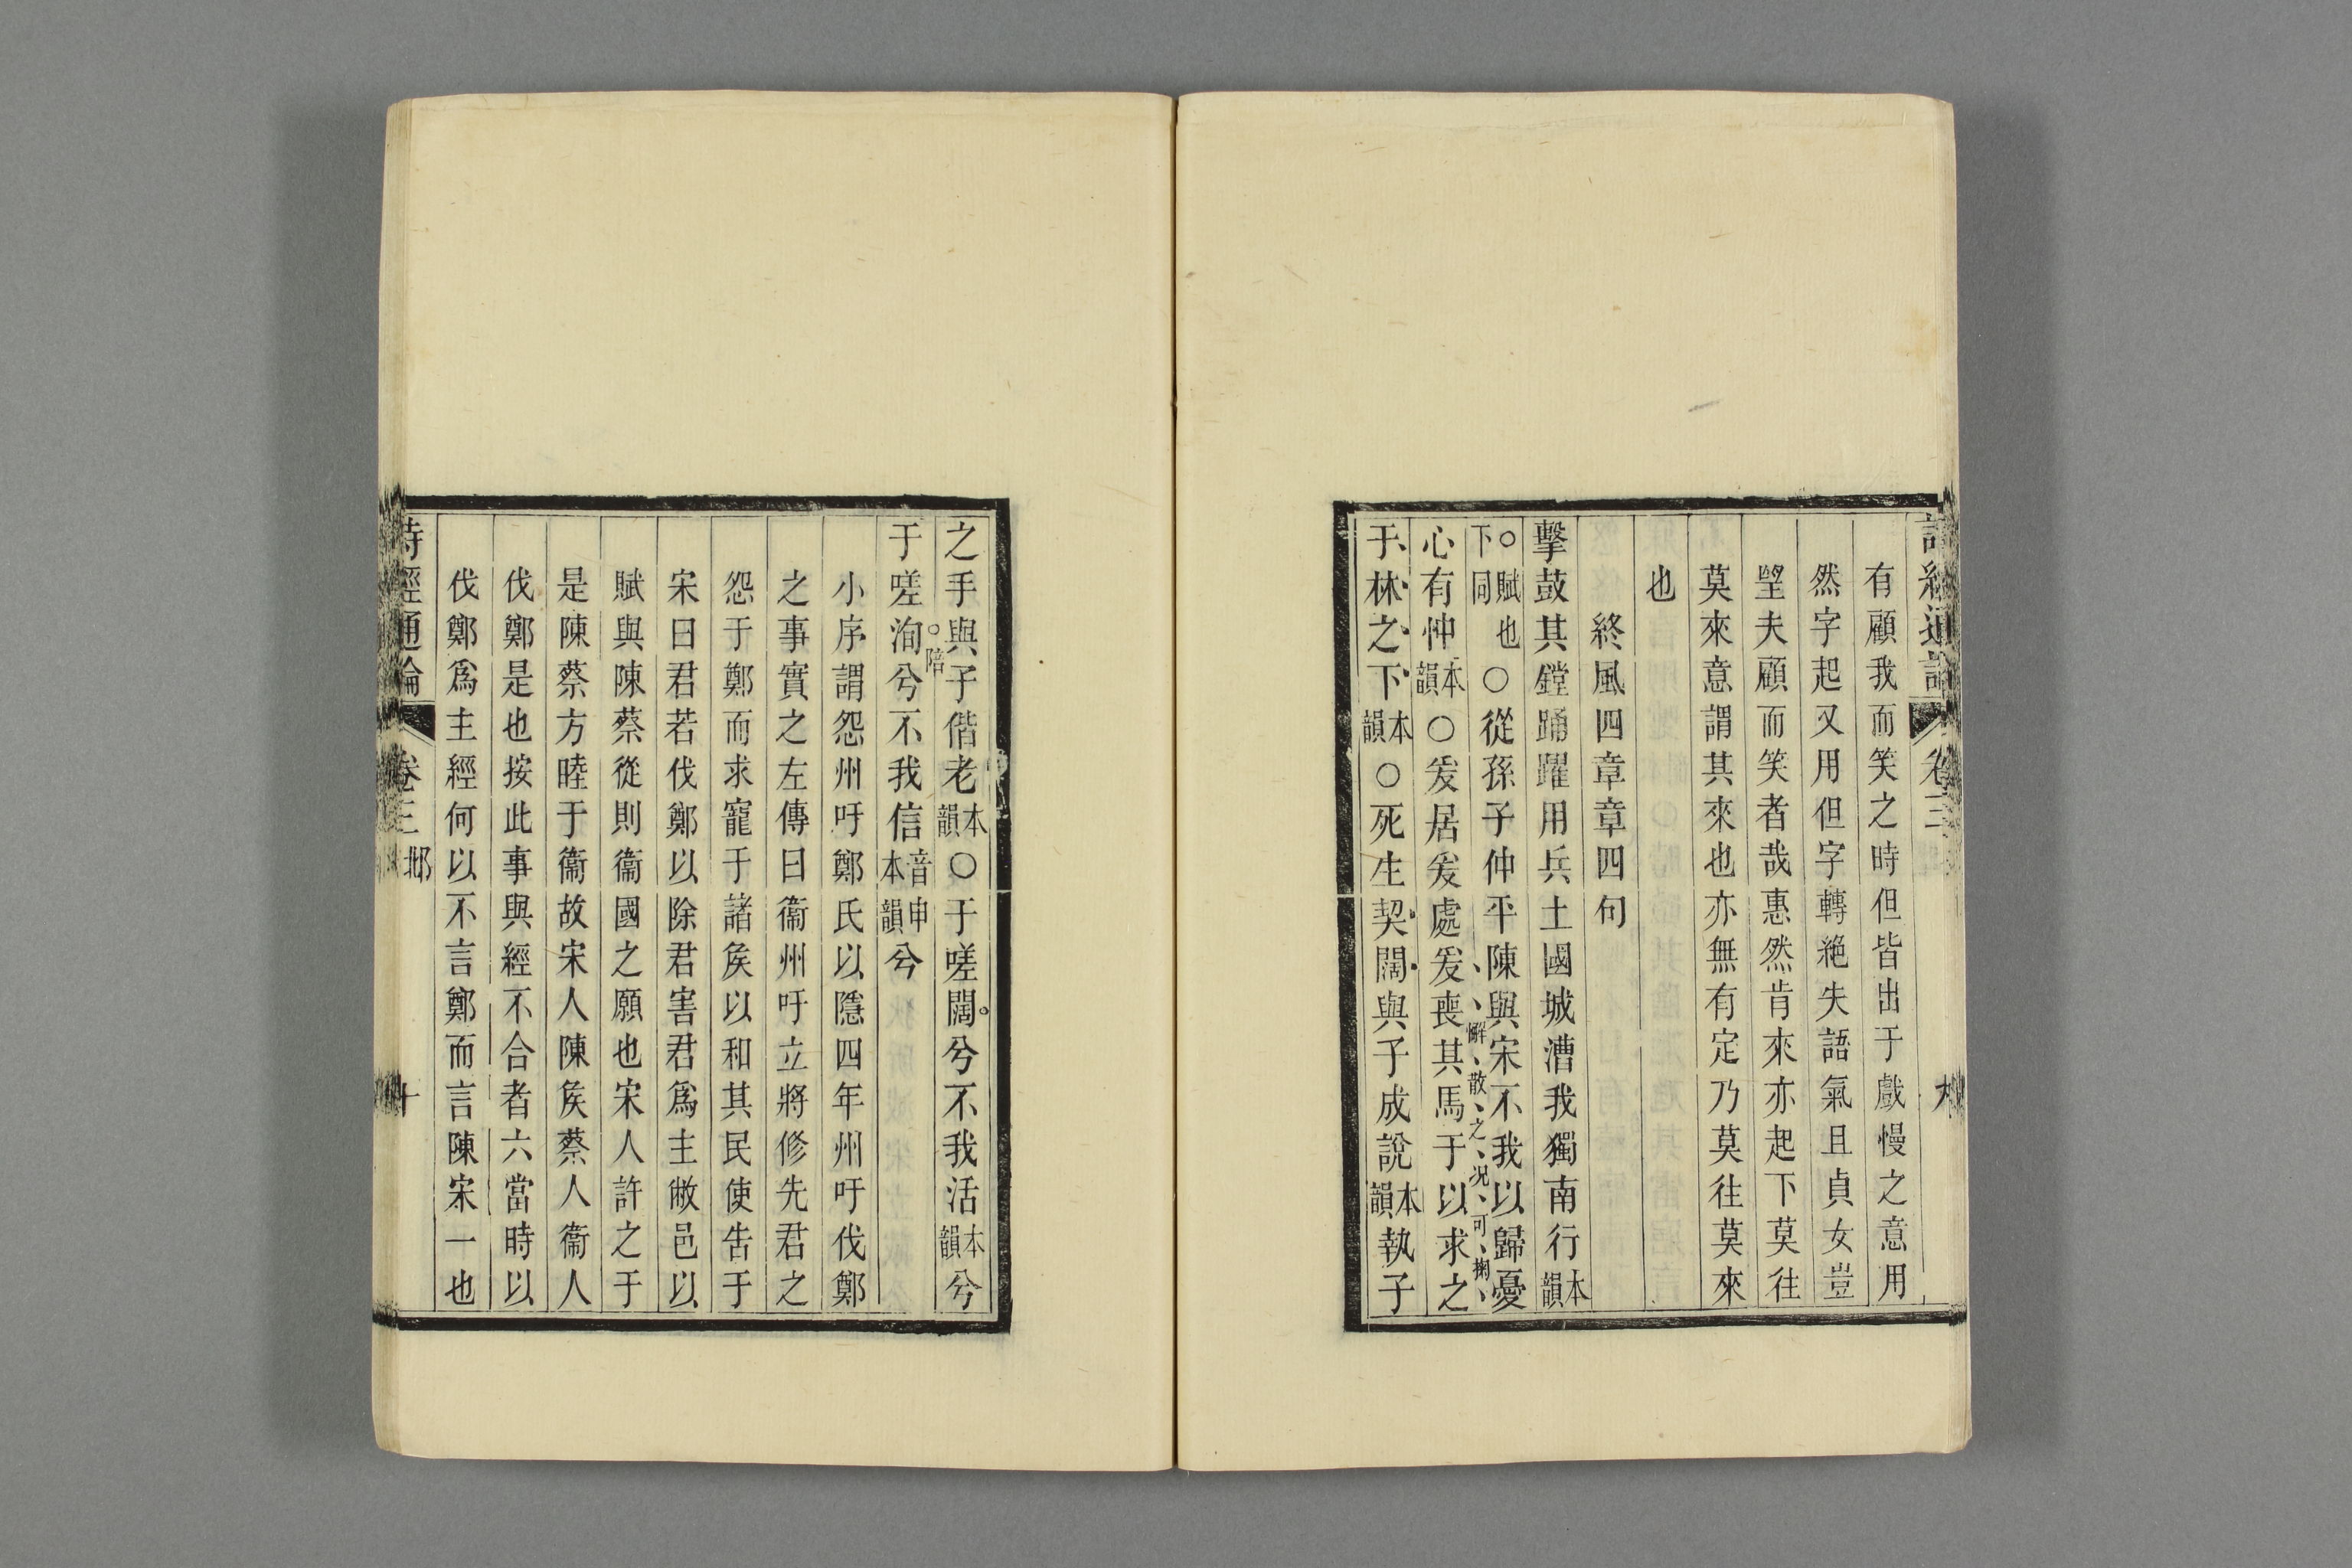 有顧我而笑之時但皆出于戲慢之意用
然字起又用但字轉絶失語氣且貞女豈
望夫顧而笑者哉惠然肯來亦起下莫往
莫來意謂其來也亦無有定乃莫往莫來
也
終風四章章四句
擊鼓其鏜踊躍用兵土國城漕我獨南行本韻
○賦也下同○從孫子仲平陳與宋不我以歸憂
心有忡本韻○爰居爰處爰喪其馬于以求之
懈散之況可掬
于林之下本韻○死生契闊與子成說本韻執子
詩經通論 卷三 九
之手與子偕老本韻○于嗟闊兮不我活本韻兮
陪
于嗟洵兮不我信音申本韻兮
小序謂怨州吁鄭氏以隱四年州吁伐鄭
之事實之左傳曰衞州吁立將修先君之
怨于鄭而求寵于諸矦以和其民使告于
宋曰君若伐鄭以除君害君爲主敝邑以
賦與陳蔡從則衞國之願也宋人許之于
是陳蔡方睦于衞故宋人陳矦蔡人衞人
伐鄭是也按此事與經不合者六當時以
伐鄭爲主經何以不言鄭而言陳宋一也
詩經通論 卷三 邶 十